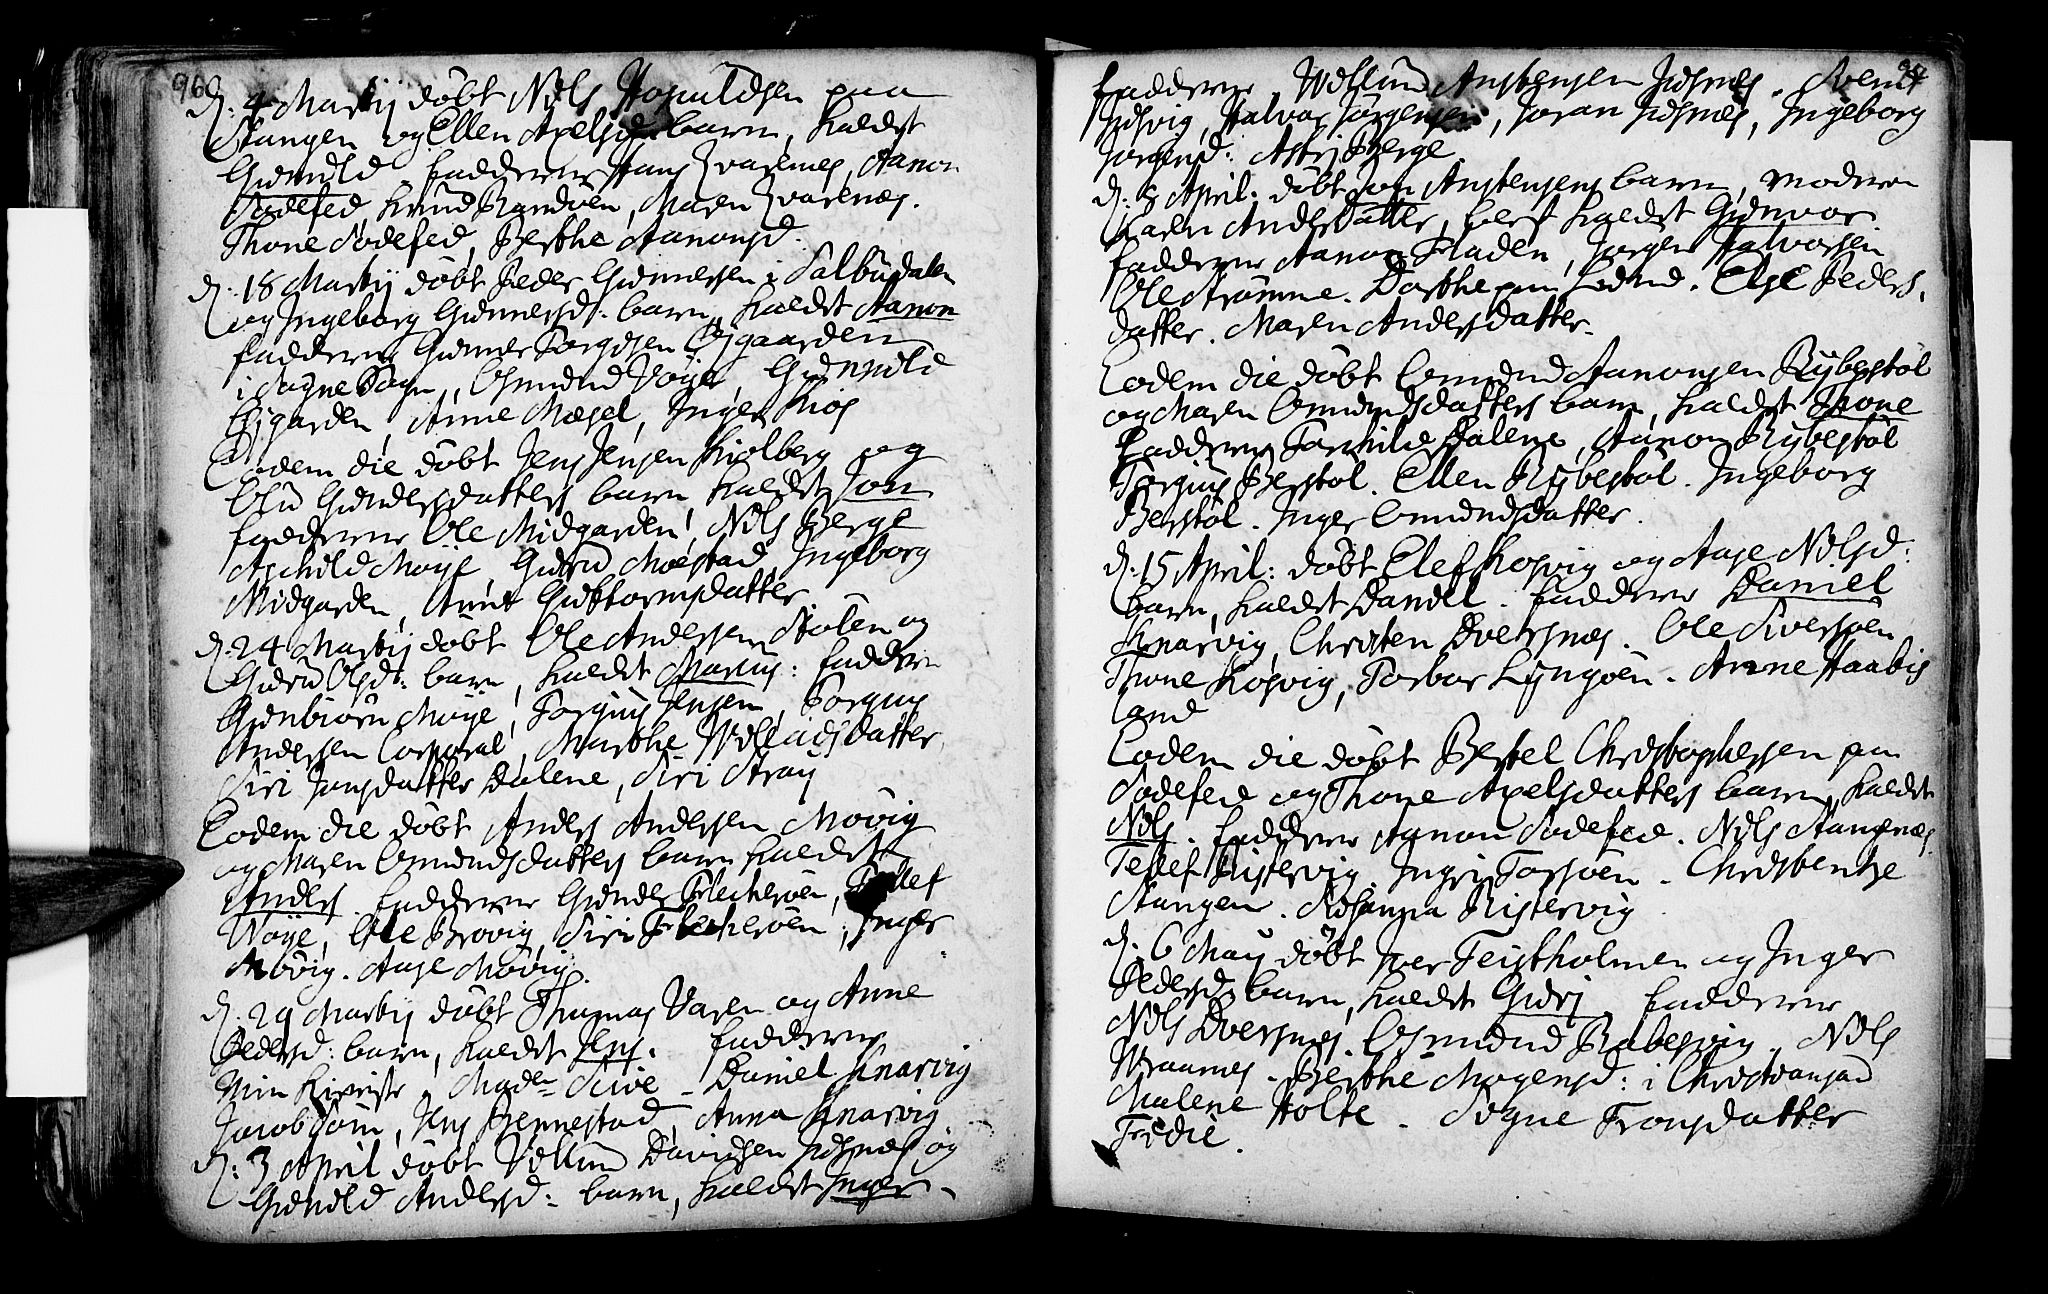 96
d. 4 Martij döbt Nils paa
Stangen og Ellen Axelsd. barn, kaldet
Gunnild. faddere Hans Qvarenes, Aanon
Sodefed, Knud Randöen, Maren Qvarenes.
Thone Sodefed, Berthe Aanonsd.
d. 18 Martij döbt Peder Gunnersen i Salbudalen
og Ingeborg Gunnersd: barn, kaldet Aanon
fadderne Gunder Torgersen Ejgaarden
i Sogne Sogn, Osmund Vöye, Gunnild
Ejgarden, Anne Mæsel, Inger Kios
Eodem die döbt Jens Jensen Kiolberg og
Gundersdatters barn, kaldet Jon
fadderne Ole Midgarden, Nils Berge
Aschild Möye, Guru Moestad, Ingeborg
Midgarden, Anne Guttormsdatter
d. 24 Martij döbt Ole Andersen Stölen og
Guru Olsd: barn, kaldet Marus: faddere
Gunbiörn Möye, Torgius Jensen, Torgius
Andersen Corporal, Marthe Willadsdatter,
Siri Jonsdatter Dalene, Siri Stray
Eodem die döbt Anders Andersen Mövig
og Maren Omundsdatters barn kaldet
Anders. faddere Gunder Flecheröen, Tellef
Vöye, Ole Brovig, Siri Flecheröen, Inger
Mövig. Aase Mövig.
d. 29 Martij döbt Thomas Varen og Anne
Pedersd: barn, kaldet Jens. faddere
Min Kiereste, Mad:n Daniel Knarvig
Jacob Som, Jens Bennestad, Anna Knarvig
d. 3 April döbt Villum Davidsen Justnes og
Gunild Andersd: barn, kaldet Inger.
97
faddere Willum Anstensen Justnes. Svend
Justvig, Halvor Jörgensen, Joran Justnes, Ingeborg
Jörgensd: Astri Berge
d. 8 April: döbt Jon Anstensens barn, moderen
Karen Andersdatter, kaldet Gunvor
faddere Aanon Fladen, Jörgen Halvorsen
Ole Strömme. Dorthe paa Lund. Else Peders,
datter. Maren Andersdatter.
Eodem die döbt Omund Aanonsen Rybestöl
og Maren Omundsdatters barn, kaldet Thone
faddere Torkild Dalene, Aanon Rybestöl
Torgius Berstöl. Ellen Rybestöl. Ingeborg
Berstöl. Inger Omundsdatter.
d. 15 April: döbt Elef Kosvig og Aase Nilsd:
barn, kaldet Daniel. faddere Daniel
Knarvig, Christen Dversnes. Ole Siversöen
Thone Kosvig, Torbor Lyngöen. Anne Haabis
land
Eodem die döbt Bertel Christophersen paa
Sodefed og Thone Axelsdatters barn, kaldet
Nils. faddere Aanon Sodefed. Nils Stangenes.
Tellef Ristervig. Ingri Torsöen. Christentze
Stangen. Susanna Ristervig
d. 6 Maij döbt Iver Teistholmen og Inger
Pedersd: barn, kaldet Guri faddere
Nils Dversnes. Osmund Rabersvig. Nils
Vraanes. Berthe Mogensd: i Christiansand
Malene Holte. Signe Tronsdatter
Tridie.